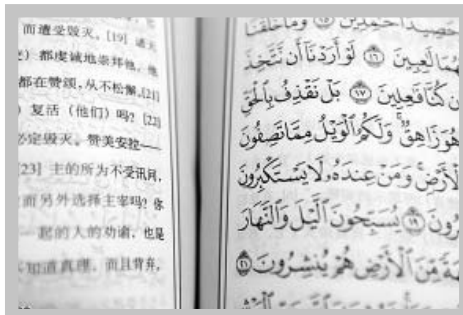 而遭受毁灭。[19] 诸天
都虔诚地崇拜他，他
都在赞颂，从不松懈。[21]
复活（他们）吗？[22]
必定毁灭。赞美安拉——
[23] 主的所为不受讯问，
而另外选择主宰吗？你
一起的人的劝谕，也是
知道真理，而且背弃，
حَصِيدًا خَٰمِدِينَ ١٥ وَمَا خَلَقْنَا
لَٰعِبِينَ ١٦ لَوْ أَرَدْنَآ أَن نَّتَّخِذَ
كُنَّا فَٰعِلِينَ ١٧ بَلْ نَقْذِفُ بِٱلْحَقِّ
هُوَ زَاهِقٌ وَلَكُمُ ٱلْوَيْلُ مِمَّا تَصِفُونَ
ٱلْأَرْضِ وَمَنْ عِندَهُۥ لَا يَسْتَكْبِرُونَ
١٩ يُسَبِّحُونَ ٱلَّيْلَ وَٱلنَّهَارَ
مِّنَ ٱلْأَرْضِ هُمْ يُنشِرُونَ ٢١